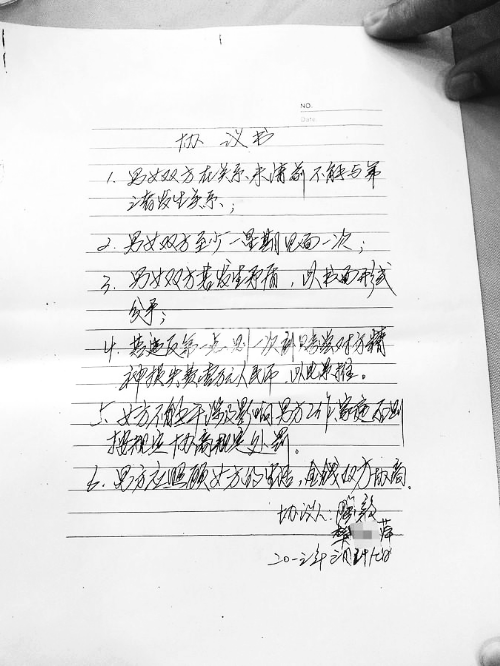 NO.
Date
协议书
1. 男女双方在关系未清前不能与第
三者发生关系；
2. 男女双方至少一星期见面一次；
3. 男女双方若发生矛盾，以书面形式
公予；
4. 若违反第一点则一次补赔偿对方精
神损失费壹万元人民币，以此类推。
5. 女方不能干涉及影响男方工作家庭否则
按规定协商规定处罚。
6. 男方应照顾女方的生活，金钱双方协商。
协议人：
樊 萍
二0一二年